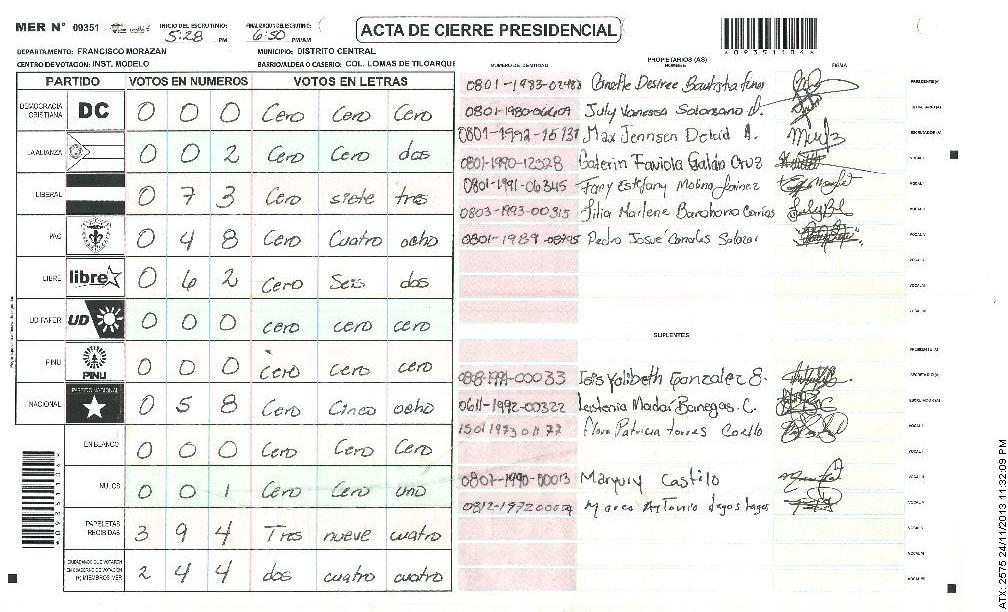 MER N° 09351 INICIO DEL ESCRUTINIO: 5:28 PM FINALIZACION DEL ESCRUTINIO: 6:50 PM/AM ACTA DE CIERRE PRESIDENCIAL
DEPARTAMENTO: FRANCISCO MORAZAN MUNICIPIO: DISTRITO CENTRAL
CENTRO DE VOTACION: INST. MODELO BARRIO/ALDEA O CASERIO: COL. LOMAS DE TILOARQUE
PARTIDO VOTOS EN NUMEROS VOTOS EN LETRAS
DEMOCRACIA CRISTIANA DC 0 0 0 Cero Cero Cero
LA ALIANZA 0 0 2 Cero Cero dos
LIBERAL 0 7 3 Cero siete tres
PAC 0 4 8 Cero Cuatro ocho
LIBRE libre 0 6 2 Cero Seis dos
UD FAPER UD 0 0 0 cero cero cero
PINU PINU 0 0 0 cero cero cero
NACIONAL PARTIDO NACIONAL 0 5 8 Cero Cinco ocho
EN BLANCO 0 0 0 Cero Cero Cero
NULOS 0 0 1 Cero Cero uno
PAPELETAS RECIBIDAS 3 9 4 Tres nueve cuatro
CIUDADANOS QUE VOTARON EN CUADERNO DE VOTACION (+) MIEMBROS MER 2 4 4 dos cuatro cuatro
*09351104*
PROPIETARIOS (AS)
NUMERO DE IDENTIDAD NOMBRE FIRMA
0801-1983- Desiree Bautista PRESIDENTE(A)
July Vanessa Solorzano SECRETARIO(A)
0801-1992-15131 Max Jennsen David A. ESCRUTADOR(A)
0801-1990-12328 Caterin Faviola Galán Cruz VOCAL I
0801-1991-06345 Fany Estefany Molina VOCAL II
0803-1993-00315 Lilia Marlene Barahona VOCAL III
0801-1989- Pedro Josué Canales Salazar VOCAL IV
SUPLENTES
PRESIDENTE (A)
Yolibeth Gonzalez SECRETARIO (A)
0611-1992-00322 Banegas. C. ESCRUTADOR (A)
1501 1973 Flora Patricia Torres Coello VOCAL I
0807-1990-00013 Maryury Castillo
0812-1972 Marco Antonio
ATX: 2575 24/11/2013 11:32:09 PM